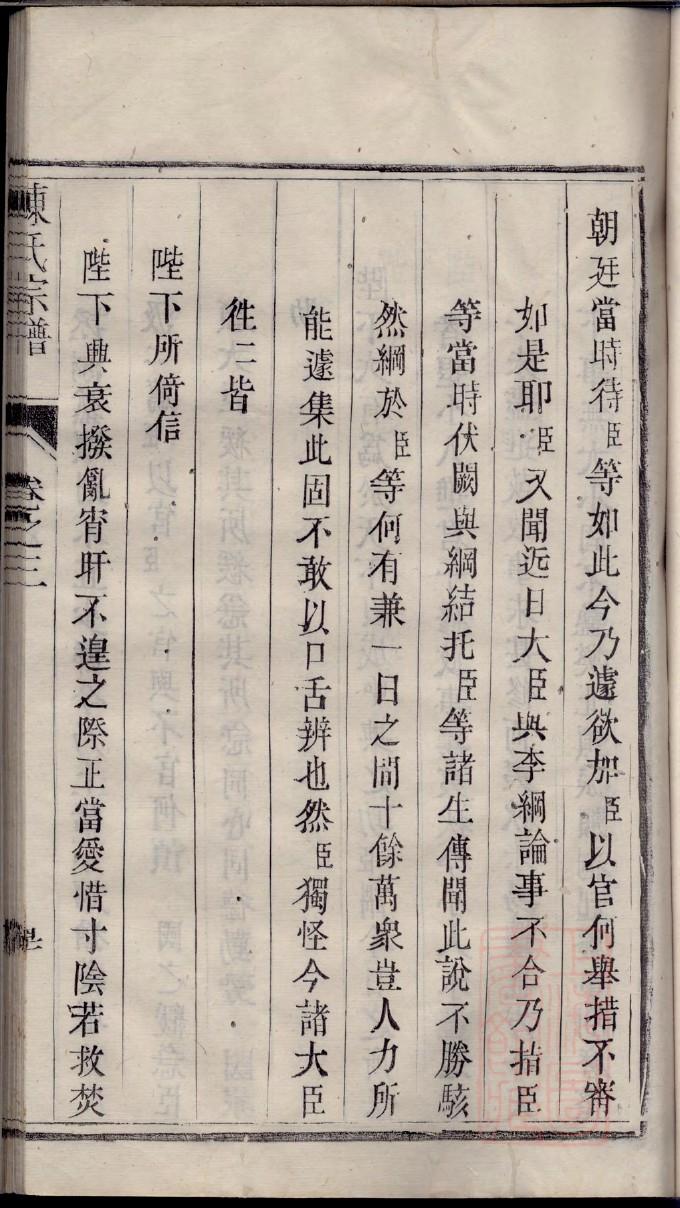 朝廷當時待臣等如此今乃遽欲加臣以官何舉措不審
如是耶臣又聞近日大臣與李綱論事不合乃指臣
等當時伏闕與綱結托臣等諸生傳聞此說不勝駭
然綱於臣等何有兼一日之間十餘萬衆豈人力所
能遽集此固不敢以口舌辨也然臣獨怪今諸大臣
徃二皆
陛下所倚信
陛下興衰撥亂宵旰不遑之際正當愛惜寸陰若救焚
陳氏宗譜
卷之三